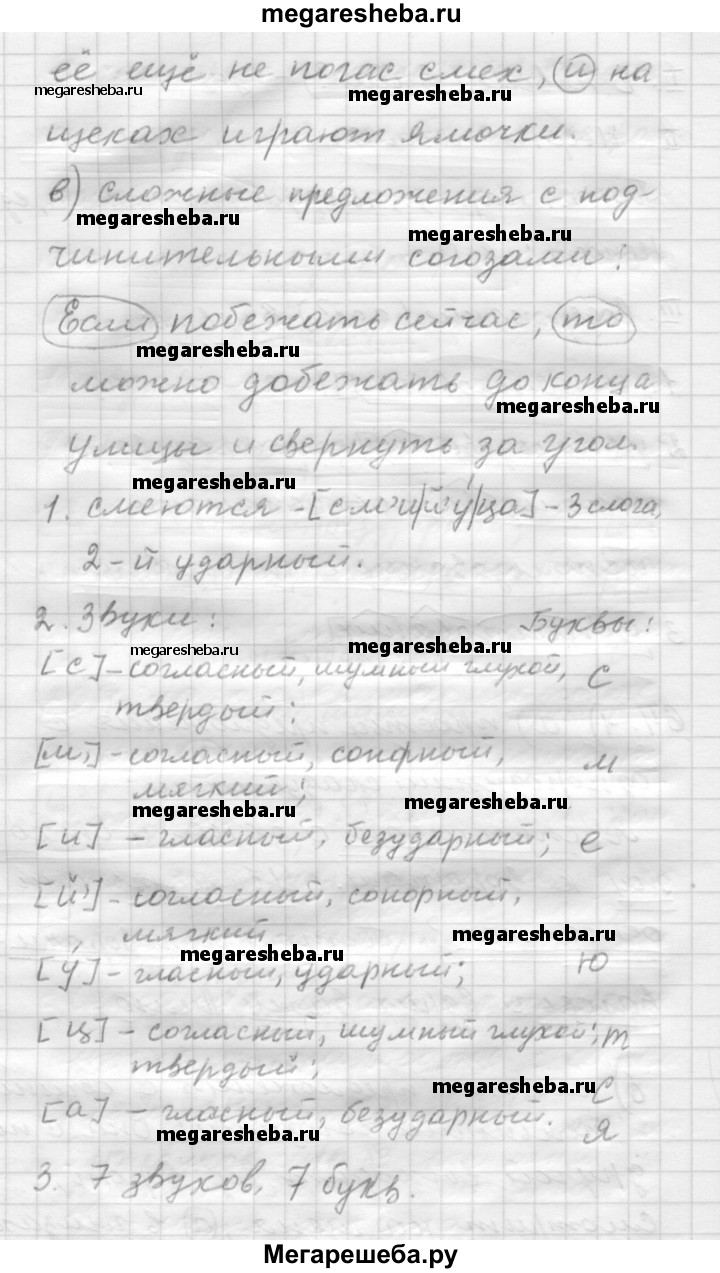 megaresheba.ru
её ещё не погас смех, и на
megaresheba.ru
megaresheba.ru
щеках играют ямочки.
в) сложные предложения с под-
megaresheba.ru
megaresheba.ru
чинительными союзами:
Если побежать сейчас, то
megaresheba.ru
можно добежать до конца
megaresheba.ru
улицы и свернуть за угол.
megaresheba.ru
1. смеются - [см'и|й'у́|ца] - 3 слога,
2-й ударный.
2. Звуки: Буквы:
megaresheba.ru
megaresheba.ru
[с] - согласный, шумный глухой, с
твердый;
[м'] - согласный, сонорный, м
мягкий;
megaresheba.ru
megaresheba.ru
[и] - гласный, безударный; е
[й'] - согласный, сонорный,
мягкий
megaresheba.ru
megaresheba.ru
[у́] - гласный, ударный; ю
[ц] - согласный, шумный глухой; т
твердый; с
megaresheba.ru
[а] - гласный, безударный. я
megaresheba.ru
3. 7 звуков, 7 букв.
Мегарешеба.ру